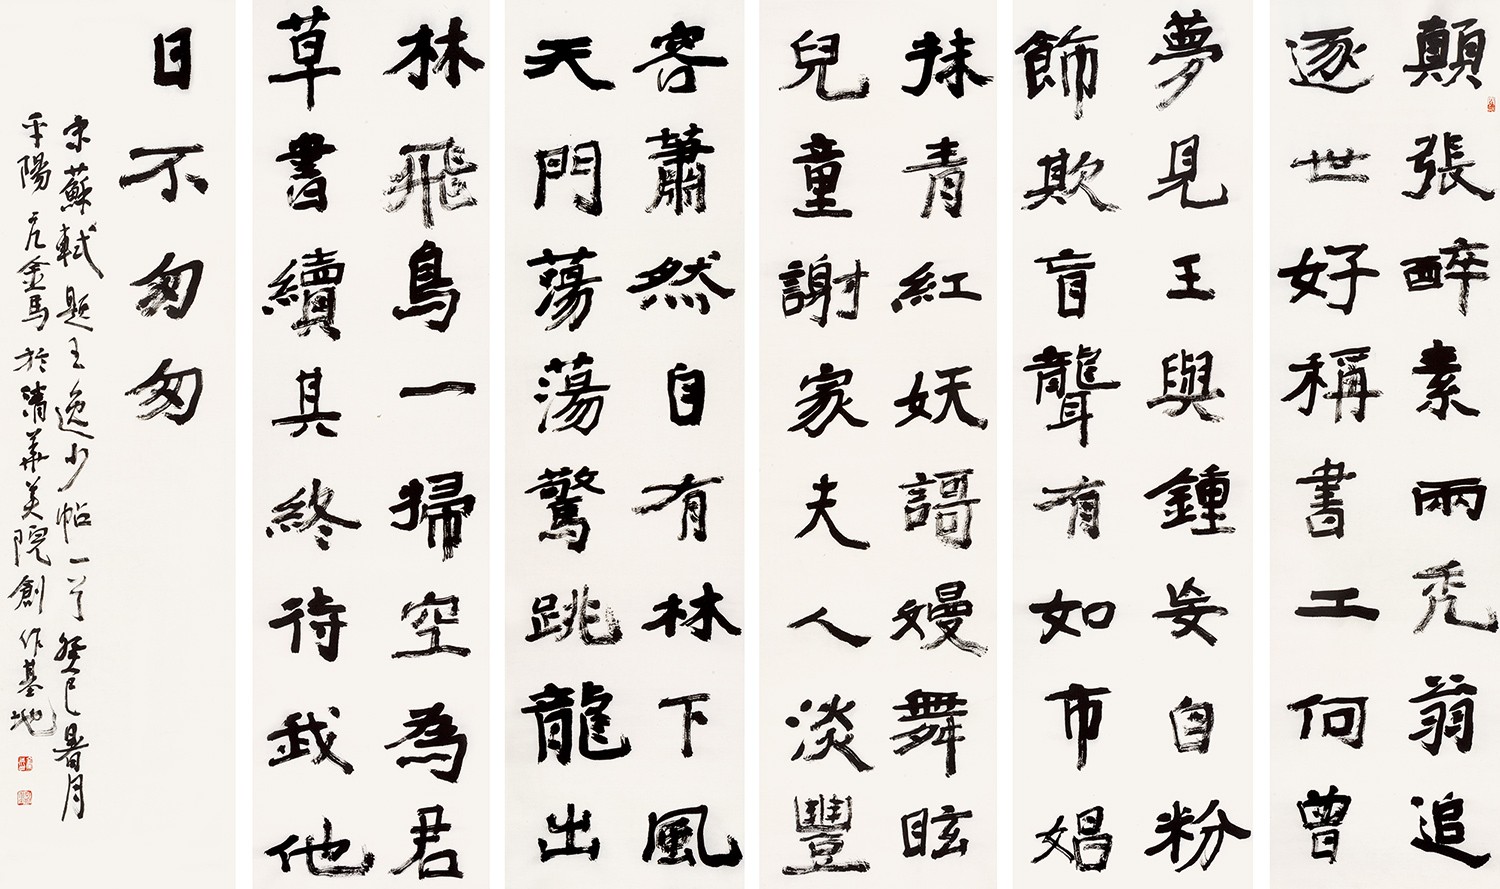 顛張醉素兩禿翁追
逐世好稱書工何曾
夢見王與鍾妄自粉
飾欺盲聾有如市娼
抹青紅妖謌嫚舞眩
兒童謝家夫人淡豐
容蕭然自有林下風
天門蕩蕩驚跳龍出
林飛鳥一掃空為君
草書續其終待我他
日不匆匆
宋蘇軾題王逸少帖一首癸巳暑月
平陽亢金馬於清華美院創作基地